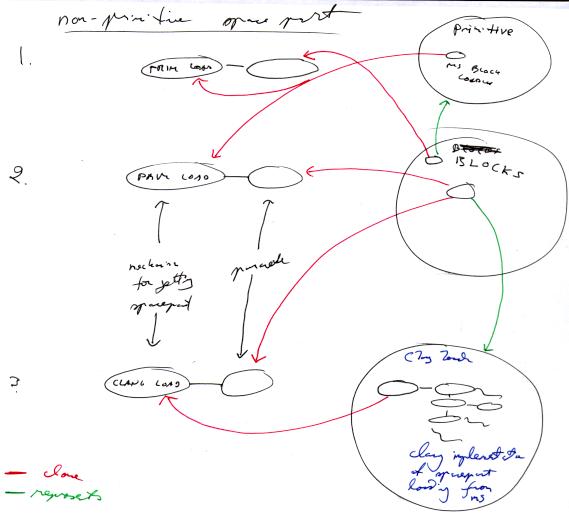 non-primitive space part
1.
PRIM LOAD
Primitive
MS BLOCK
2.
BLOCKS
PRIM LOAD
mechanism
for getting
sparepart
3
CLANG LOAD
Clang
clang implementation
of sparepart
loading from
ms
— clone
— represents